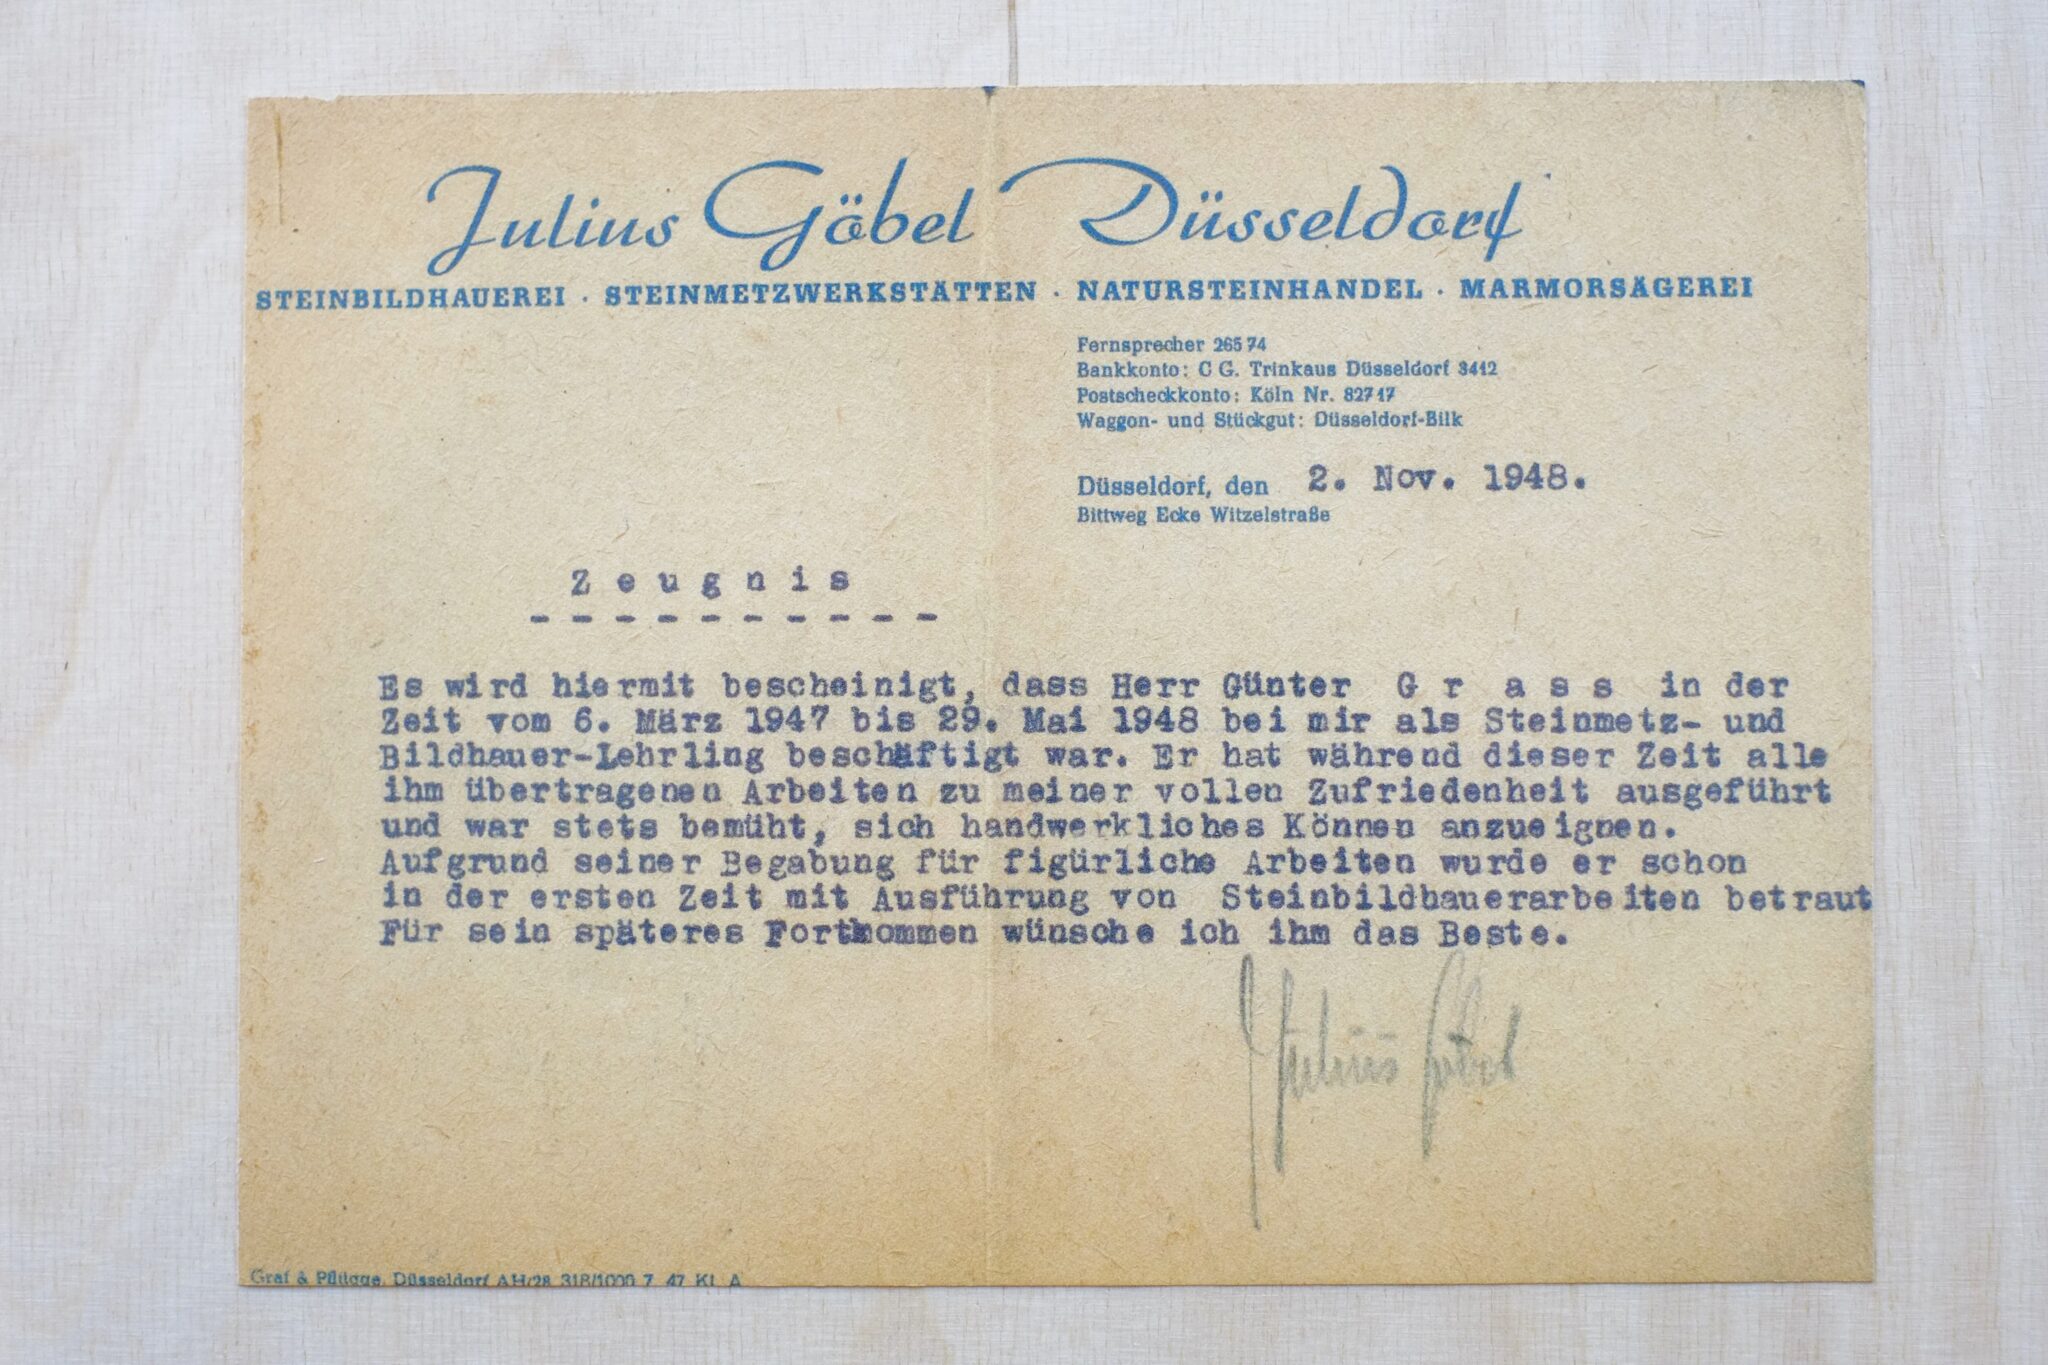 Julius Göbel Düsseldorf
STEINBILDHAUEREI · STEINMETZWERKSTÄTTEN · NATURSTEINHANDEL · MARMORSÄGEREI
Fernsprecher 265 74
Bankkonto: C G. Trinkaus Düsseldorf 3412
Postscheckkonto: Köln Nr. 82717
Waggon- und Stückgut: Düsseldorf-Bilk
Düsseldorf, den 2. Nov. 1948.
Bittweg Ecke Witzelstraße
Z e u g n i s
- - - - - - - - - -
Es wird hiermit bescheinigt, dass Herr Günter G r a s s in der
Zeit vom 6. März 1947 bis 29. Mai 1948 bei mir als Steinmetz- und
Bildhauer-Lehrling beschäftigt war. Er hat während dieser Zeit alle
ihm übertragenen Arbeiten zu meiner vollen Zufriedenheit ausgeführt
und war stets bemüht, sich handwerkliches Können anzueignen.
Aufgrund seiner Begabung für figürliche Arbeiten wurde er schon
in der ersten Zeit mit Ausführung von Steinbildhauerarbeiten betraut
Für sein späteres Fortkommen wünsche ich ihm das Beste.
Julius Göbel
Graf & Pflügge, Düsseldorf AH/28 318/1000 7. 47 Kl. A